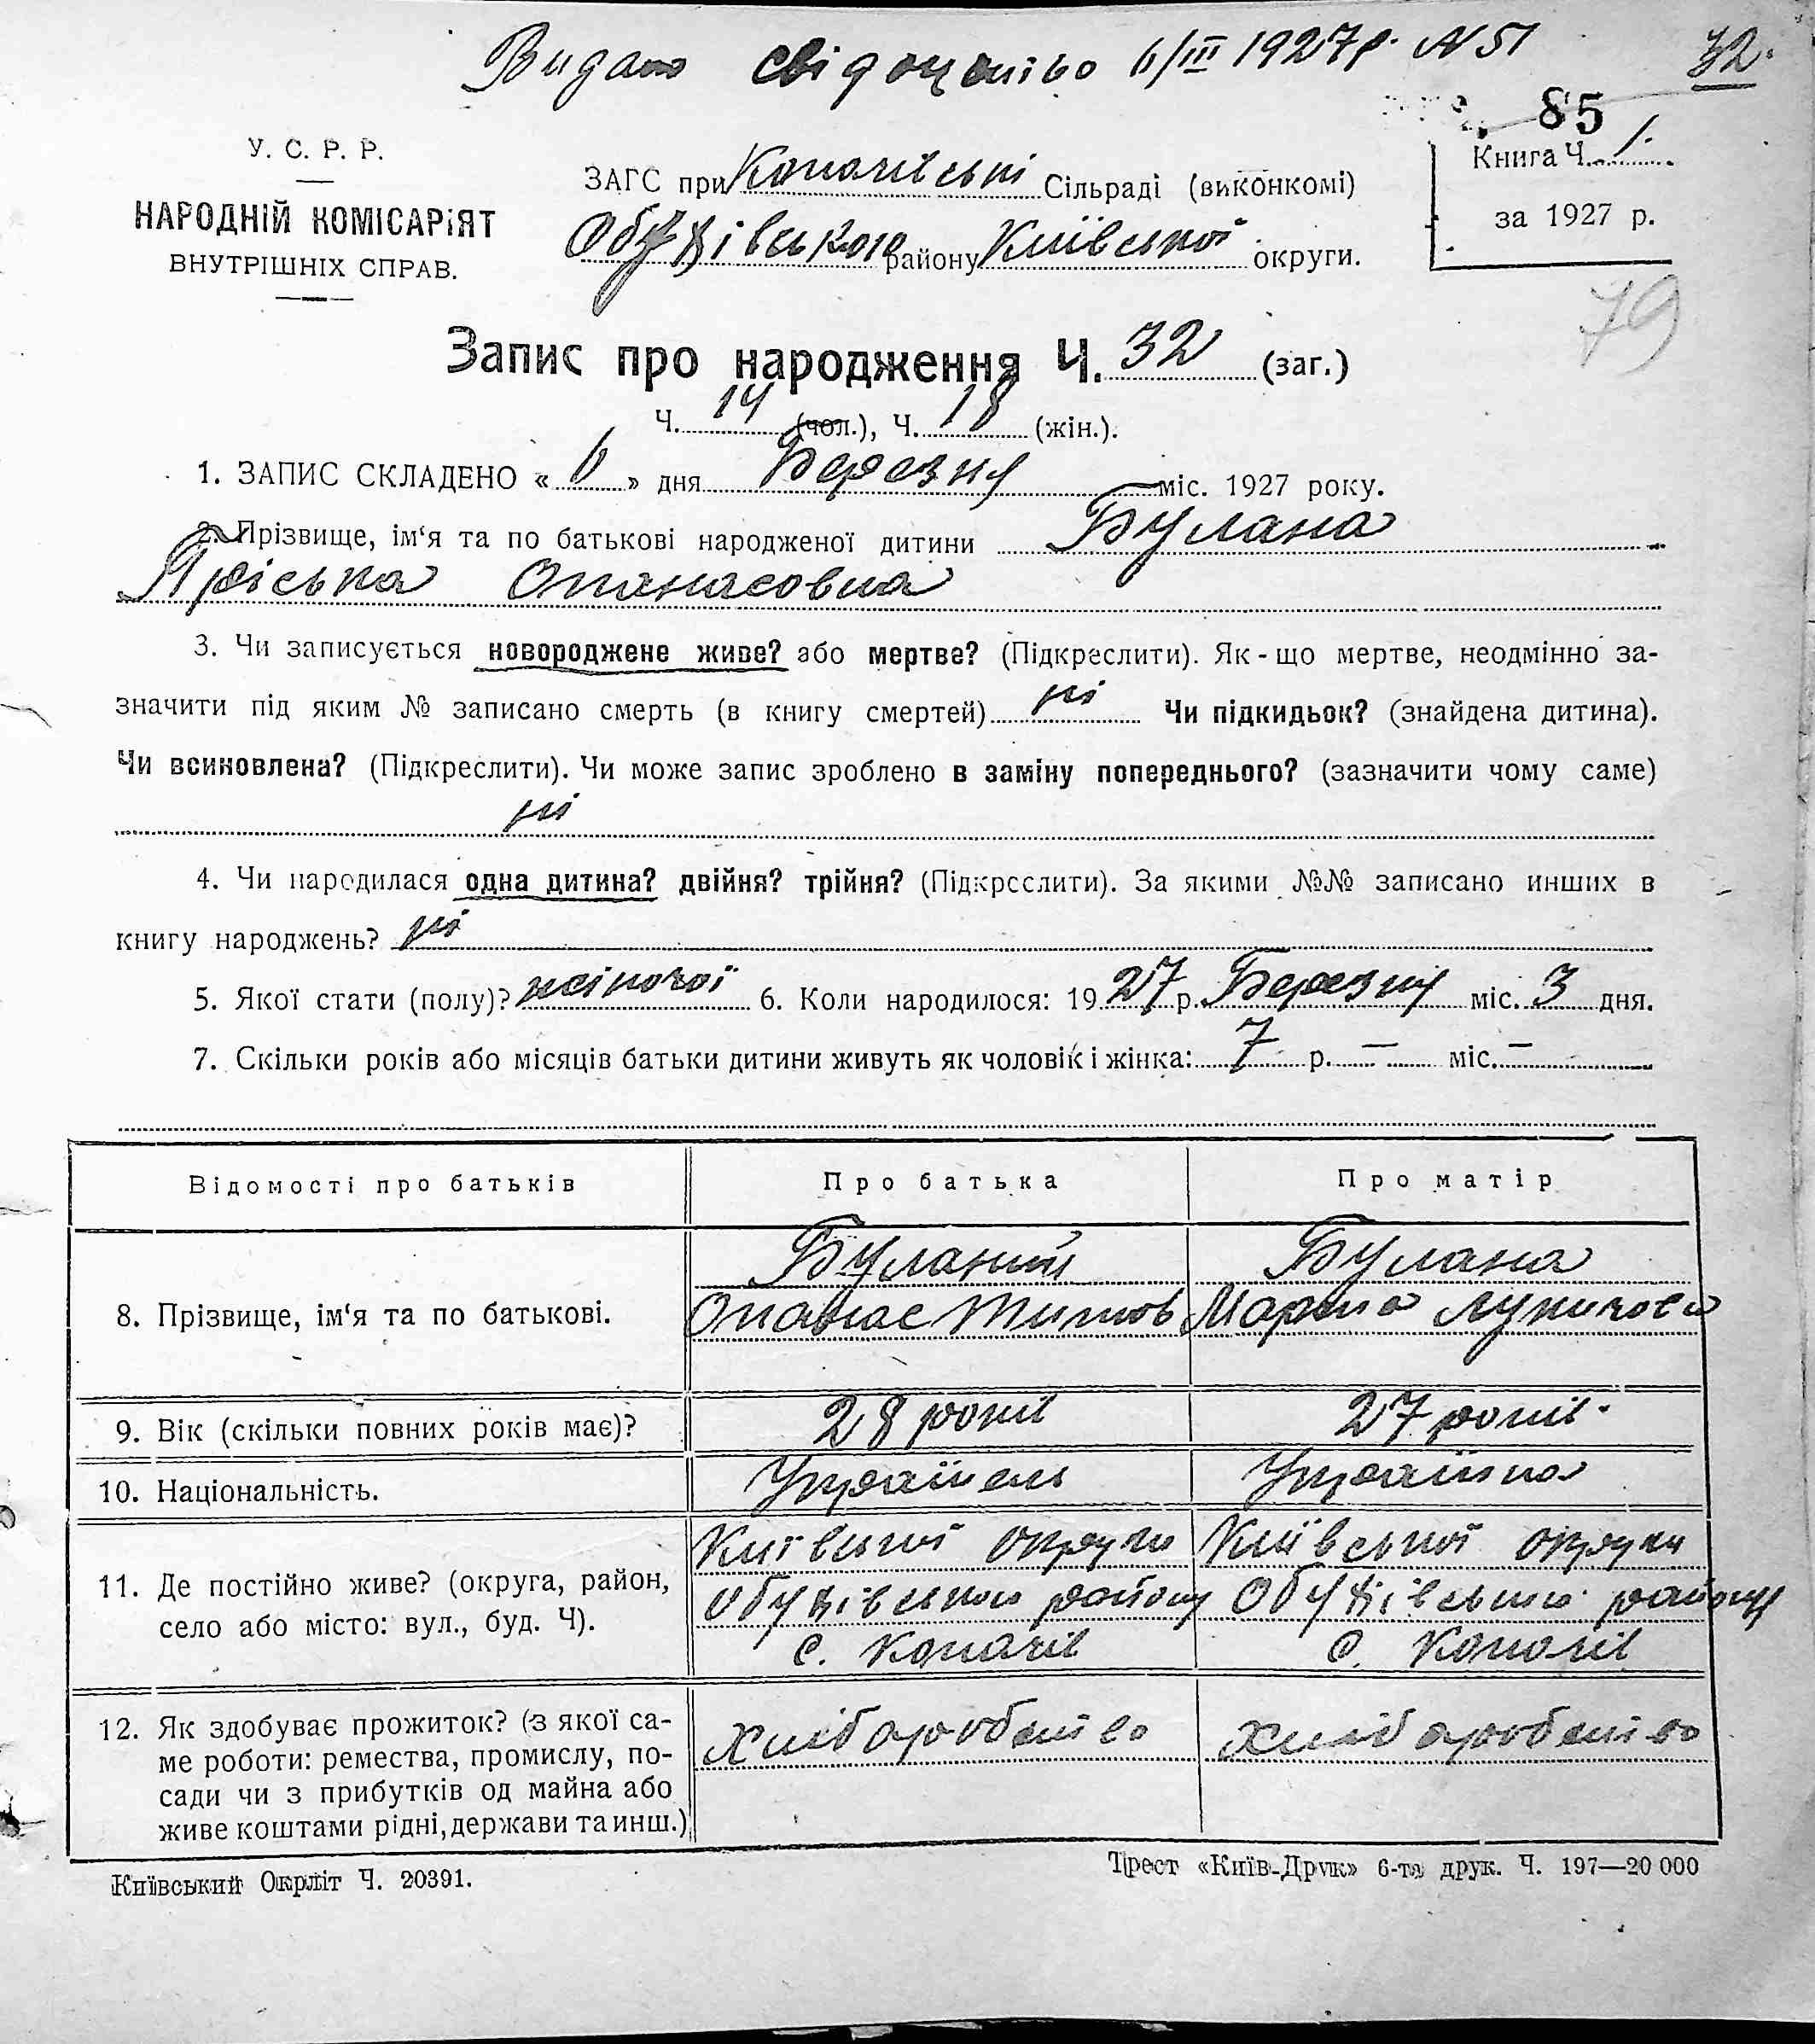 Видано свідоцтво 6/III 1927 р. N 51
32.
85
У. С. Р. Р.
НАРОДНІЙ КОМІСАРІЯТ
ВНУТРІШНІХ СПРАВ.
ЗАГС при Копачівські Сільраді (виконкомі)
Обухівського району Київської округи.
Книга Ч. 1.
за 1927 р.
79
Запис про народження Ч. 32 (заг.)
Ч. 14 (чол.), Ч. 18 (жін.).
1. ЗАПИС СКЛАДЕНО « 6 » дня Березня міс. 1927 року.
2. Прізвище, ім‘я та по батькові народженої дитини Булана
Пріська Опанасовна
3. Чи записується новороджене живе? або мертве? (Підкреслити). Як-що мертве, неодмінно за-
значити під яким № записано смерть (в книгу смертей) ні Чи підкидьок? (знайдена дитина).
Чи всиновлена? (Підкреслити). Чи може запис зроблено в заміну попереднього? (зазначити чому саме)
ні
4. Чи народилася одна дитина? двійня? трійня? (Підкреслити). За якими №№ записано инших в
книгу народжень? ні
5. Якої стати (полу)? жіночої 6. Коли народилося: 1927 р. Березня міс. 3 дня.
7. Скільки років або місяців батьки дитини живуть як чоловік і жінка: 7 р. — міс. —
Відомості про батьків Про батька Про матір
8. Прізвище, ім‘я та по батькові.
Буланий
Опанас Титов
Булана
Марина
9. Вік (скільки повних років має)? 28 років 27 років.
10. Національність. Українець Українка
11. Де постійно живе? (округа, район,
село або місто: вул., буд. Ч).
Київської округи
Обухівського району
с. Копачів
Київської округи
Обухівського району
с. Копачів
12. Як здобуває прожиток? (з якої са-
ме роботи: ремества, промислу, по-
сади чи з прибутків од майна або
живе коштами рідні, держави та инш.)
хліборобство
хліборобство
Київський Окрліт Ч. 20391.
Трест «Київ-Друк» 6-та друк. Ч. 197—20 000